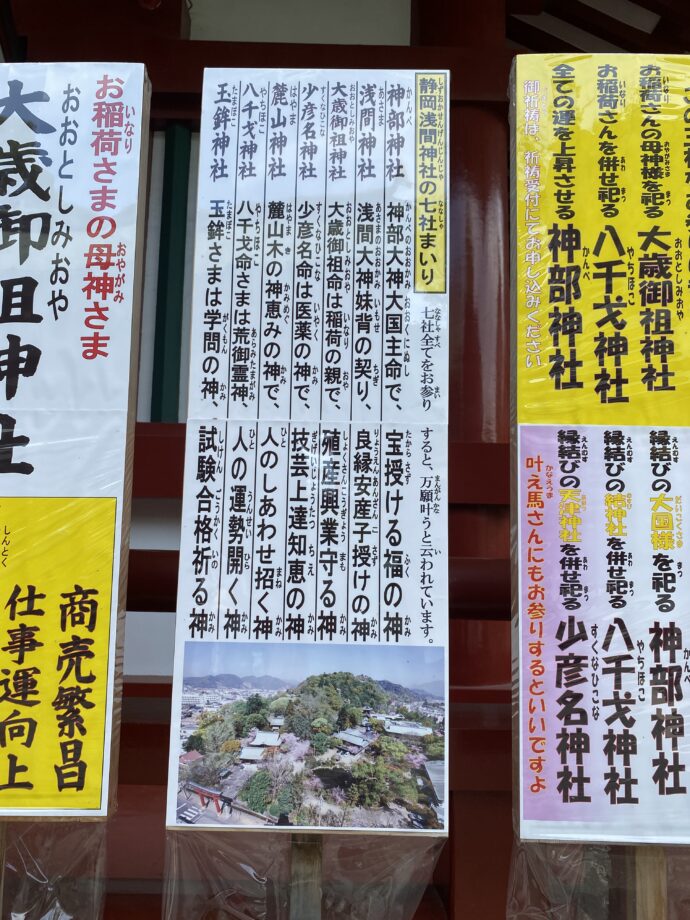 お稲荷さまの母神さま
おおとしみおや
大歳御祖神社
しんとく
商売繁昌
仕事運向上
静岡浅間神社の七社まいり
七社全てをお参りすると、万願叶うと云われています。
神部神社 神部大神大国主命で、宝授ける福の神
浅間神社 浅間大神妹背の契り、良縁安産子授けの神
大歳御祖神社 大歳御祖命は稲荷の親で、殖産興業守る神
少彦名神社 少彦名命は医薬の神で、技芸上達知恵の神
麓山神社 麓山木の神恵みの神で、人のしあわせ招く神
八千戈神社 八千戈命さまは荒御霊神、人の運勢開く神
玉鉾神社 玉鉾さまは学問の神、試験合格祈る神
お稲荷さんの母神様を祀る 大歳御祖神社
お稲荷さんを併せ祀る 八千戈神社
全ての運を上昇させる 神部神社
御祈祷は、祈祷受付にてお申し込みください
縁結びの大国様を祀る 神部神社
縁結びの結神社を併せ祀る 八千戈神社
縁結びの天津神社を併せ祀る 少彦名神社
叶え馬さんにもお参りするといいですよ